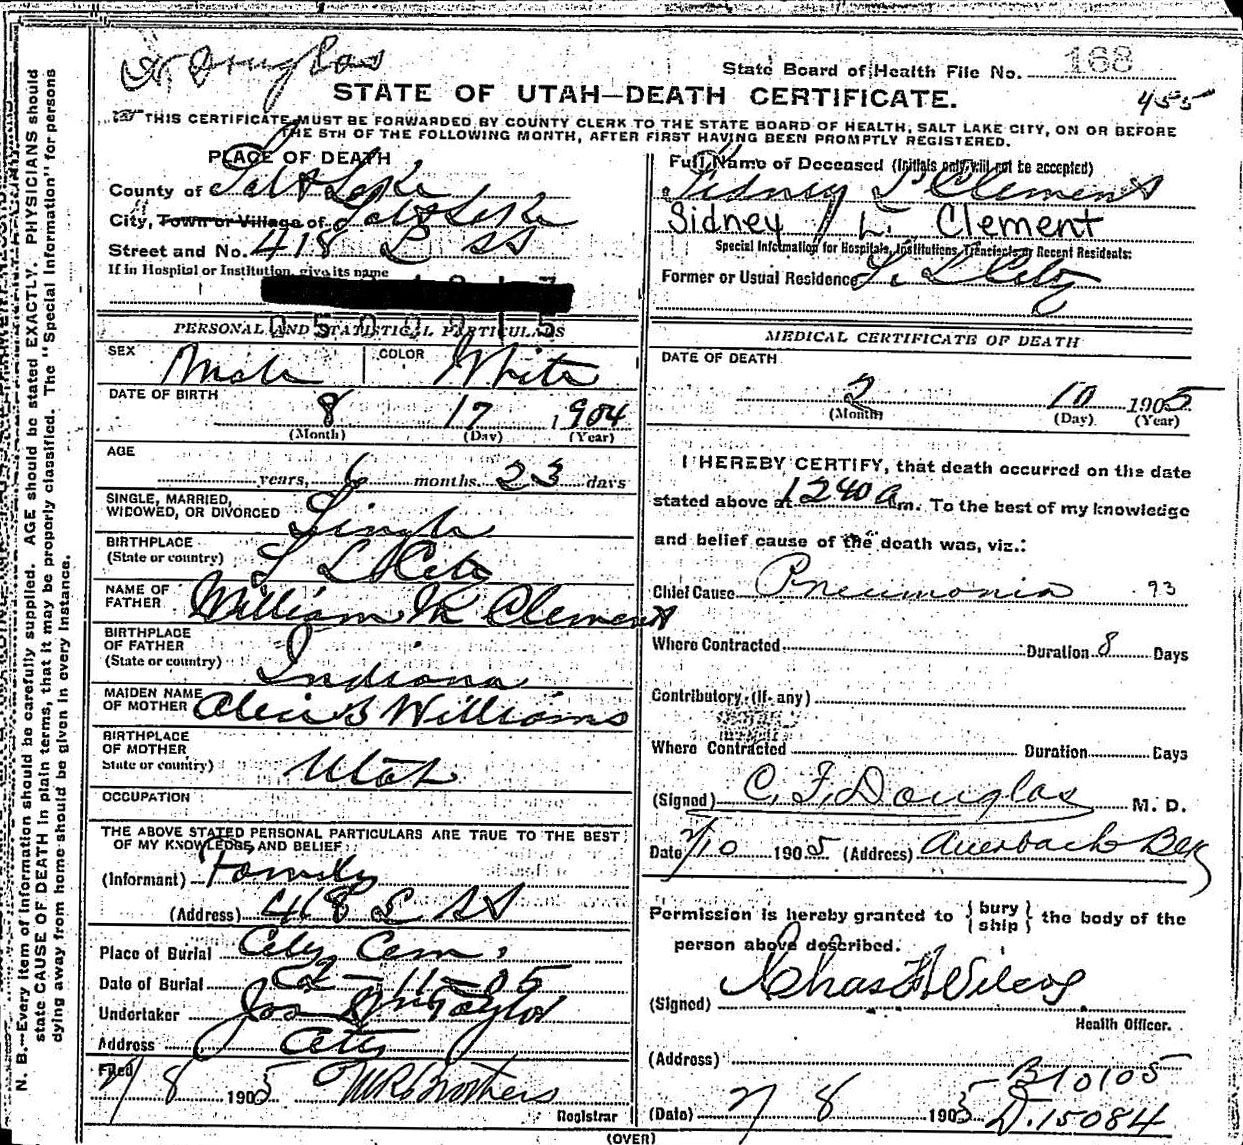 Dr Douglas
State Board of Health File No. 168
STATE OF UTAH—DEATH CERTIFICATE.
455
THIS CERTIFICATE MUST BE FORWARDED BY COUNTY CLERK TO THE STATE BOARD OF HEALTH, SALT LAKE CITY, ON OR BEFORE
THE 5TH OF THE FOLLOWING MONTH, AFTER FIRST HAVING BEEN PROMPTLY REGISTERED.
PLACE OF DEATH
County of Salt Lake
City, Town or Village of Salt Lake
Street and No. 418
If in Hospital or Institution, give its name
0500215
PERSONAL AND STATISTICAL PARTICULARS
SEX Male COLOR White
DATE OF BIRTH
8 17 1904
(Month) (Day) (Year)
AGE
years, 6 months 23 days
SINGLE, MARRIED,
WIDOWED, OR DIVORCED Single
BIRTHPLACE
(State or country) S L City
NAME OF
FATHER William M Clement
BIRTHPLACE
OF FATHER
(State or country) Indiana
MAIDEN NAME
OF MOTHER Alice B Williams
BIRTHPLACE
OF MOTHER
State or country) Utah
OCCUPATION
THE ABOVE STATED PERSONAL PARTICULARS ARE TRUE TO THE BEST
OF MY KNOWLEDGE AND BELIEF
(Informant) Family
(Address) 418
Place of Burial City Cem.
Date of Burial 2-11-05
Undertaker Jos Wm Taylor
Address City
Filed
2/8 1905 Brothers
Registrar
Full Name of Deceased (Initials only will not be accepted)
Sidney L Clement
Sidney L. Clement
Special Information for Hospitals, Institutions, Transients or Recent Residents:
Former or Usual Residence S. L City
MEDICAL CERTIFICATE OF DEATH
DATE OF DEATH
2 10 1905
(Month) (Day) (Year)
I HEREBY CERTIFY, that death occurred on the date
stated above at 1240 a m. To the best of my knowledge
and belief cause of the death was, viz.:
Chief Cause Pneumonia 93
Where Contracted Duration 8 Days
Contributory (if any)
Where Contracted Duration Days
(Signed) C. F. Douglas M. D.
Date 2/10 1905 (Address) Auerbach
Permission is hereby granted to {bury ship} the body of the
person above described.
(Signed) Chas Wilcox
Health Officer.
(Address)
B10105
(Date) 2/8 1905 D.15084
(OVER)
N. B.—Every item of information should be carefully supplied. AGE should be stated EXACTLY. PHYSICIANS should
state CAUSE OF DEATH in plain terms, that it may be properly classified. The "Special Information" for persons
dying away from home should be given in every instance.